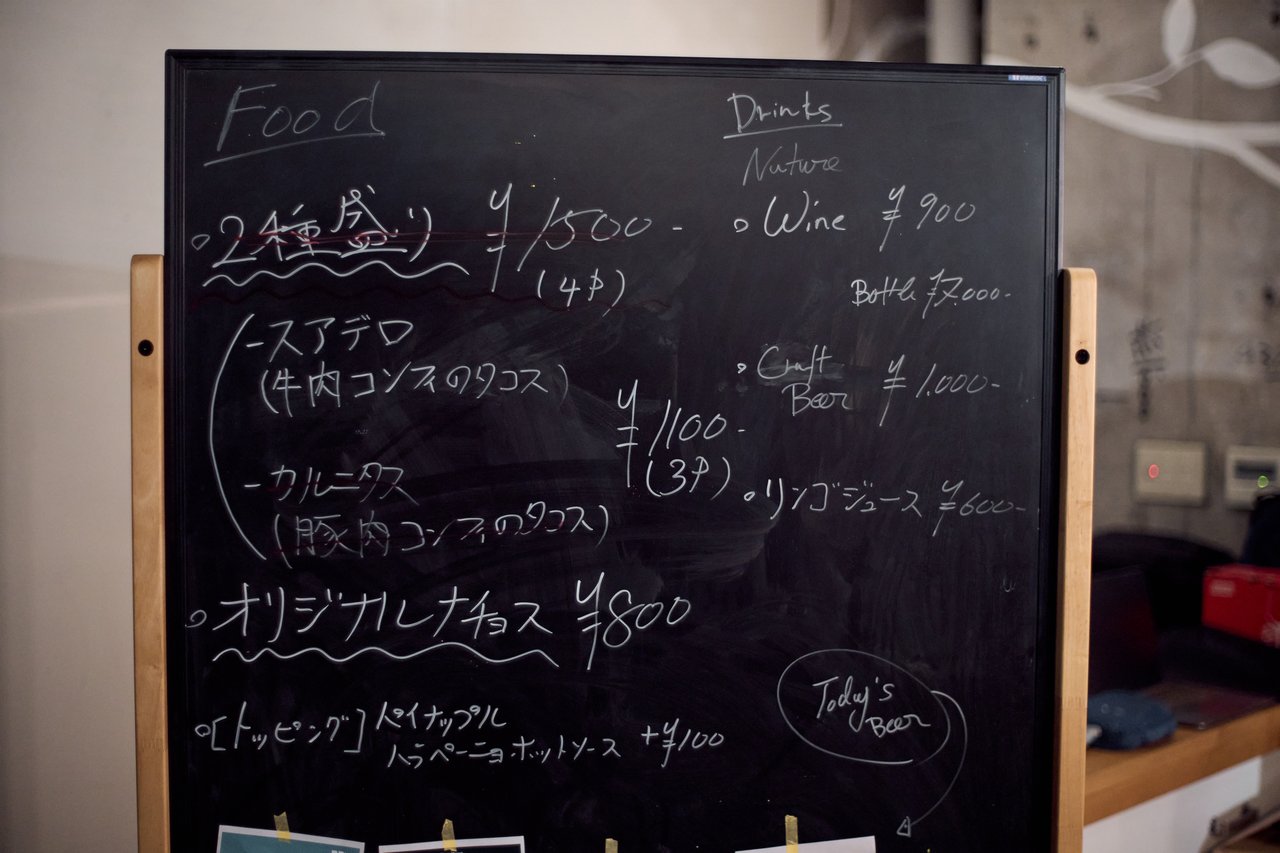 Food
。2種盛り ¥1500-
(4P)
-スアデロ
(牛肉コンフィのタコス)
¥1100-
(3P)
-カルニタス
(豚肉コンフィのタコス)
。オリジナルナチョス ¥800
。[トッピング] パイナップル
ハラペーニョホットソース +¥100
Drinks
Nuture
。Wine ¥900
Bottle ¥7.000-
。Craft
Beer ¥1.000-
。リンゴジュース ¥600-
Today's
Beer